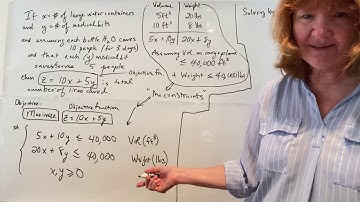 If x = # of large water containers
and y = # of medical kits
and assuming each bottle H2O saves
10 people (for 5 days)
and that each (y) medical kit
saves/serves 5 people
then z = 10x + 5y = total
number of lives saved
Objective fn
Volume Weight
5 ft³ 20 lbs
10 ft³ 8 lbs
5x + 10y 20x + 8y
Assuming Vol on cargo plane
≤ 40,000 ft³
+ Weight ≤ 40,000 lbs
"the constraints"
Solving by
Objective: Objective Function
Maximize z = 10x + 5y
st
5x + 10y ≤ 40,000 Vol (ft³)
20x + 8y ≤ 40,000 Weight (lbs)
x, y ≥ 0